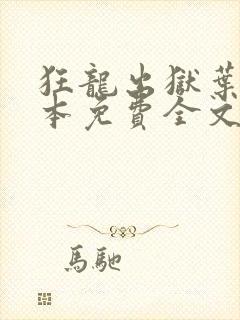 狂龍出獄葉
本免費全文
馬馳